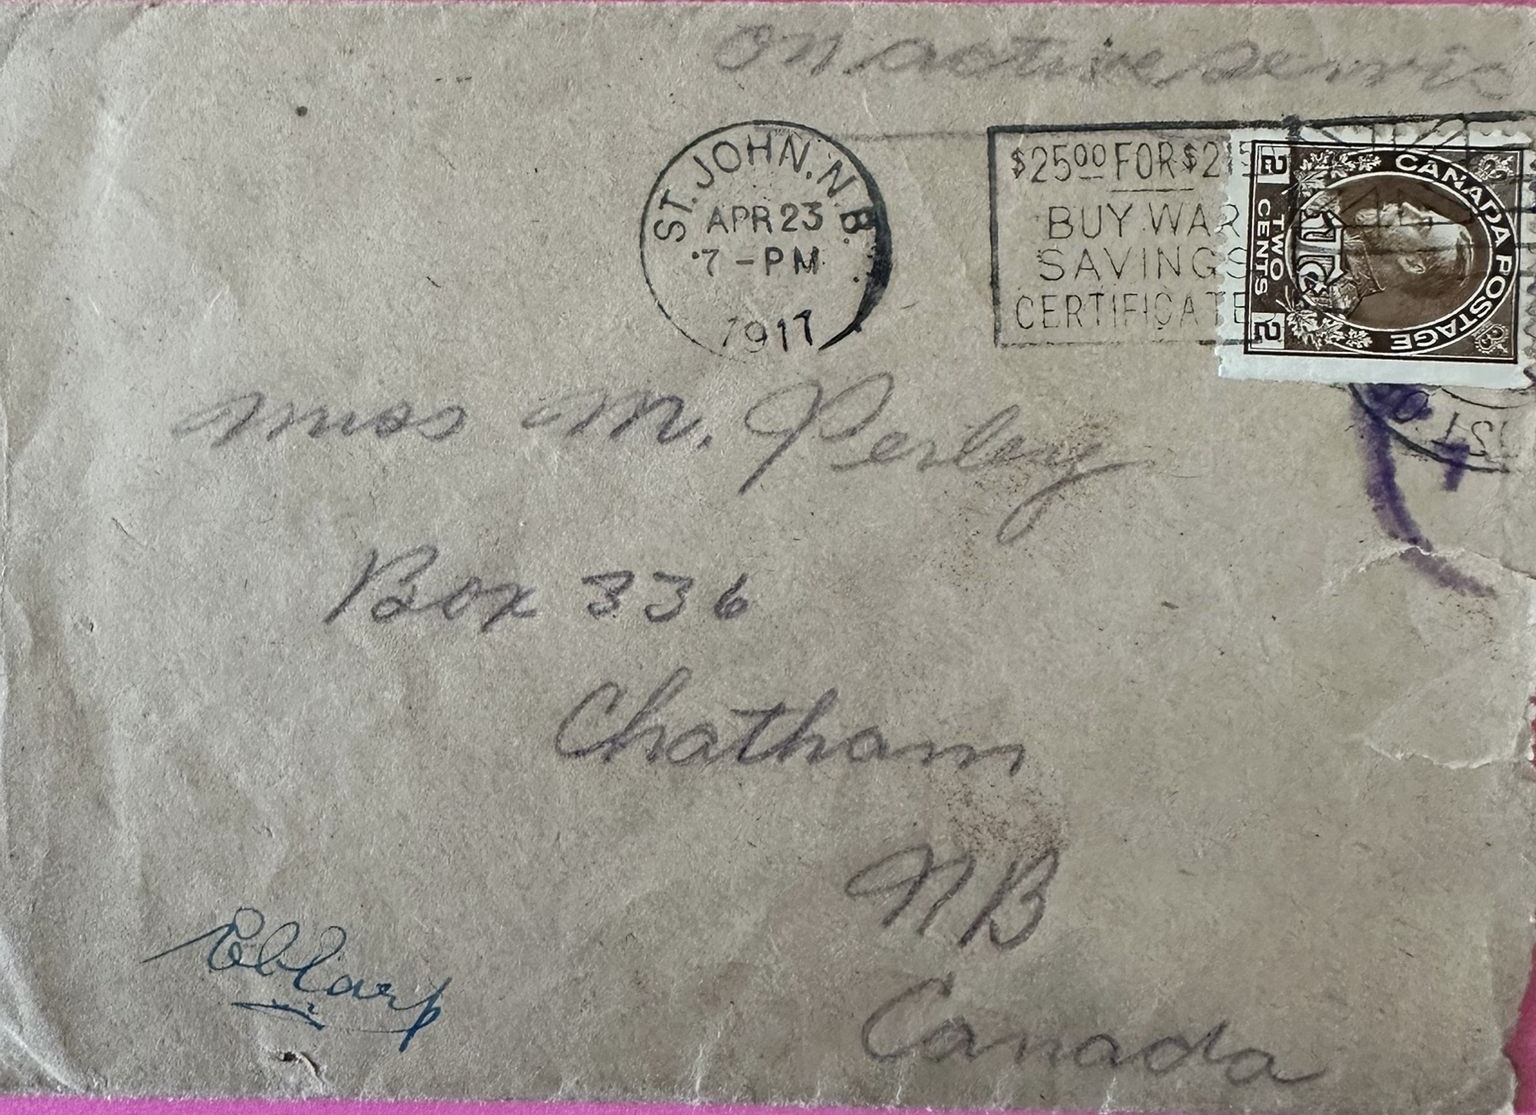 On active servic
ST. JOHN. N.B.
APR 23
7-PM
1917
$2500 FOR $21
BUY WAR
SAVINGS
CERTIFICATE
CANADA POSTAGE
2 TWO CENTS 2
Miss M. Perley
Box 336
Chatham
NB
Canada